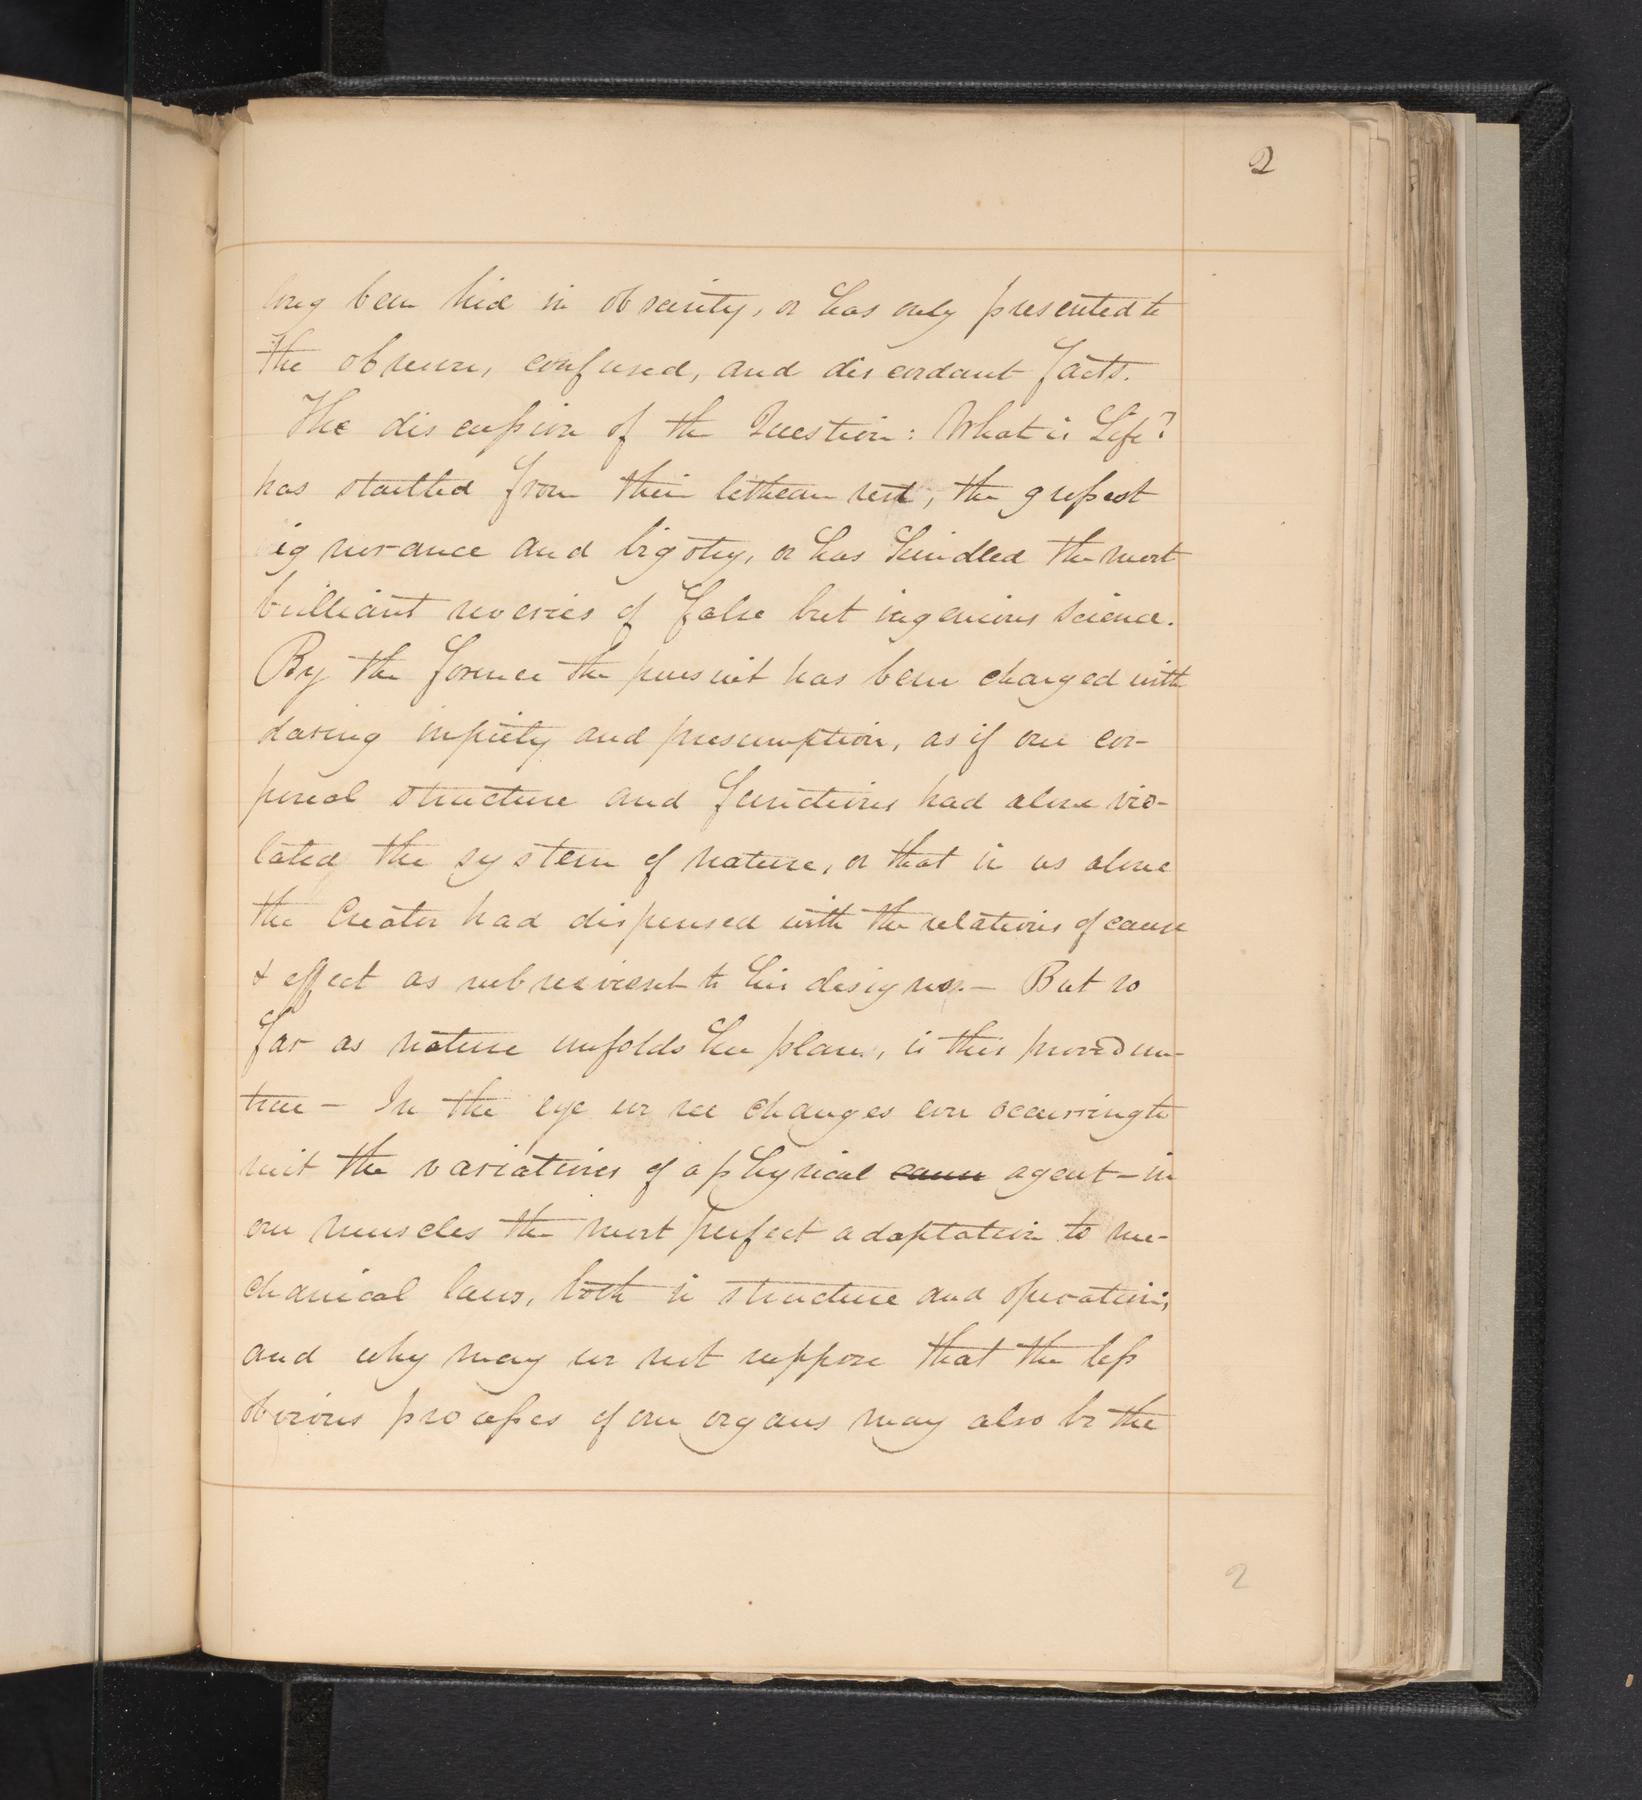 2
long been hid in obscurity, or has only presented to
the observer, confused, and discordant facts.
The discussion of the Question: What is Life?
has startled from their lethean rest, the grossest
ignorance and bigotry, or has kindled the most
brilliant reveries of false but ingenious science.
By the former the pursuit has been charged with
daring impiety and presumption, as if our cor-
poreal structure and functions had alone vio-
lated the system of nature, or that in us alone
the Creator had dispensed with the relations of cause
& effect as subservient to his designs. — But so
far as nature unfolds her plans, is this proved un-
true — In the eye we see changes ever occurring to
suit the variations of a physical cause agent — in
our muscles the most perfect adaptation to me-
chanical laws, both in structure and operation;
and why may we not suppose that the less
obvious processes of our organs may also be the
2